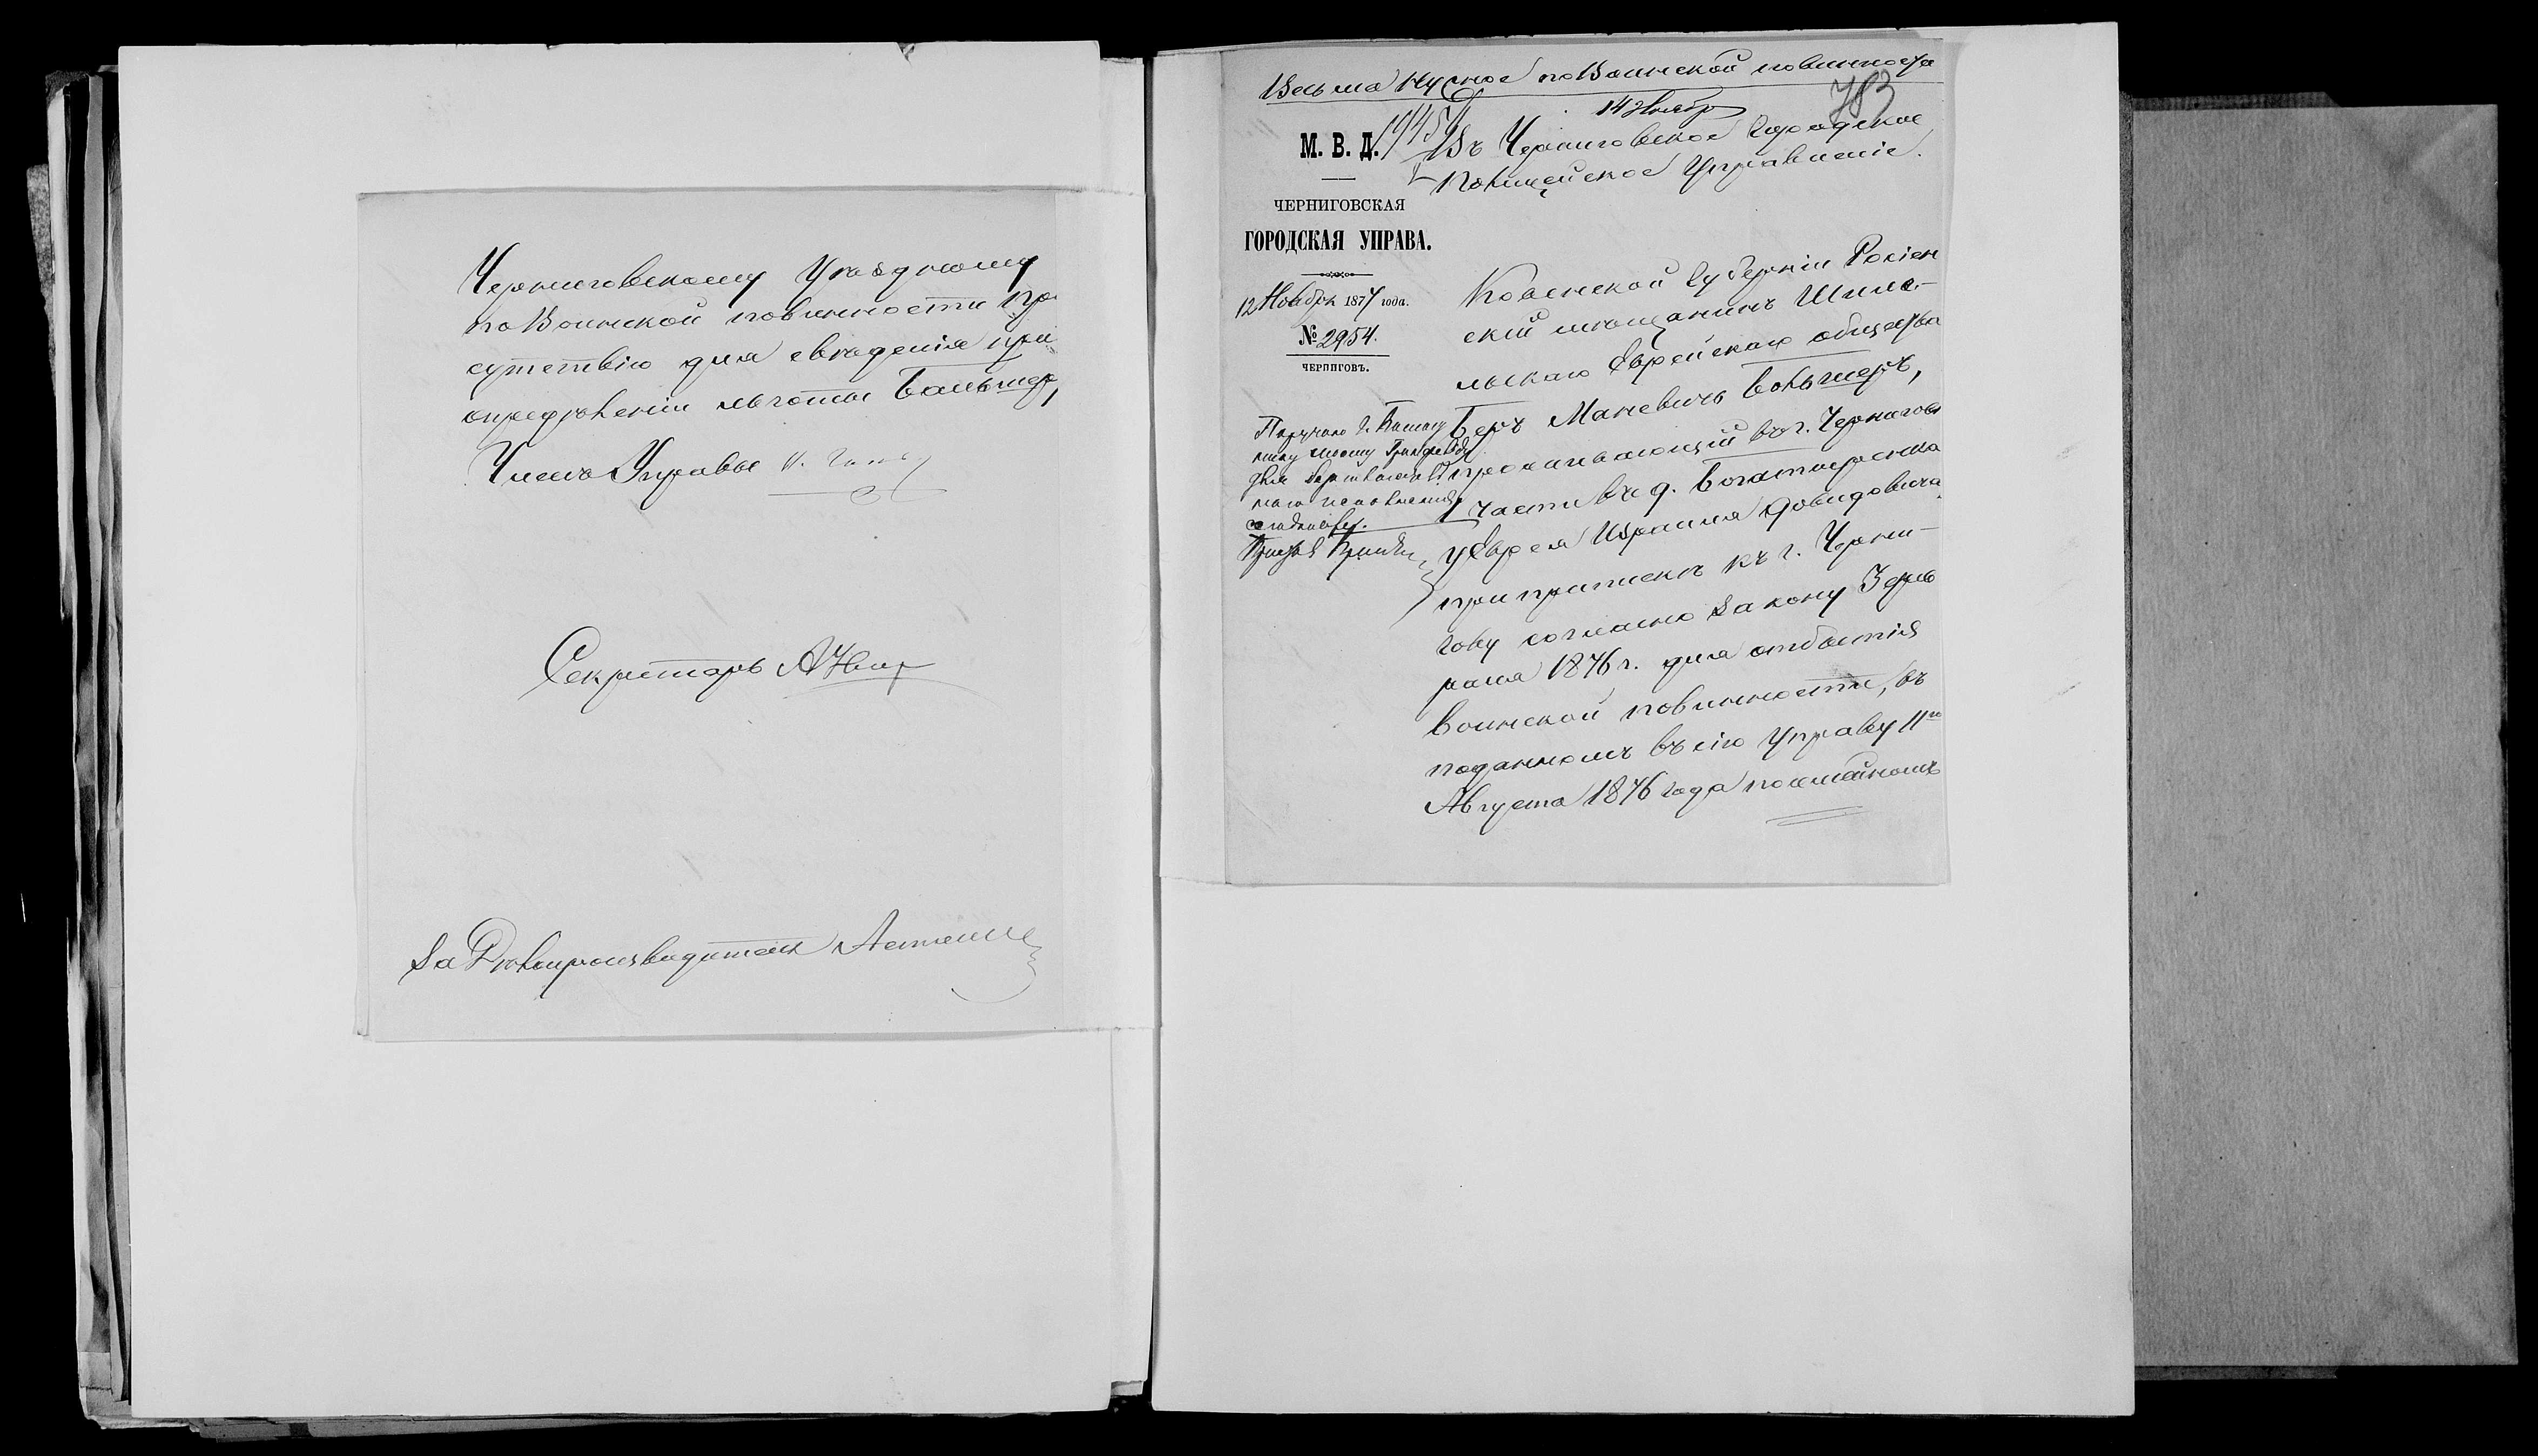 Черниговскому Уѣздному
по Воинской повинности При
сутствію для свѣденія при
опредѣленіи льготы Бальшер,
Членъ Управы
Секретарь
За Дѣлопроизводителя
Весьма Нужное по Воинской повинности
783
14 Ноябр
19451
М. В. Д.
ЧЕРНИГОВСКАЯ
ГОРОДСКАЯ УПРАВА.
12 Ноября 1877 года.
№ 2954.
ЧЕРНИГОВЪ.
Въ Черниговское Городское
Полицейское Управленіе.
Ковенской Губерніи Росіен
скій мѣщанинъ Шиле-
льскаго Еврейскаго общества
Беръ Маневичъ Большеръ,
проживающій въ г. Чернигов
1 части въ д. Богатыренка
у Еврея Израиля Довидовича
при припискѣ къ г. Черни-
гову согласно закону 3 фев
раля 1876 г. для отбытія
воинской повинности, въ
поданномъ въ сію Управу 11го
Августа 1876 года посемейномъ
Поручаю
для
исполненія